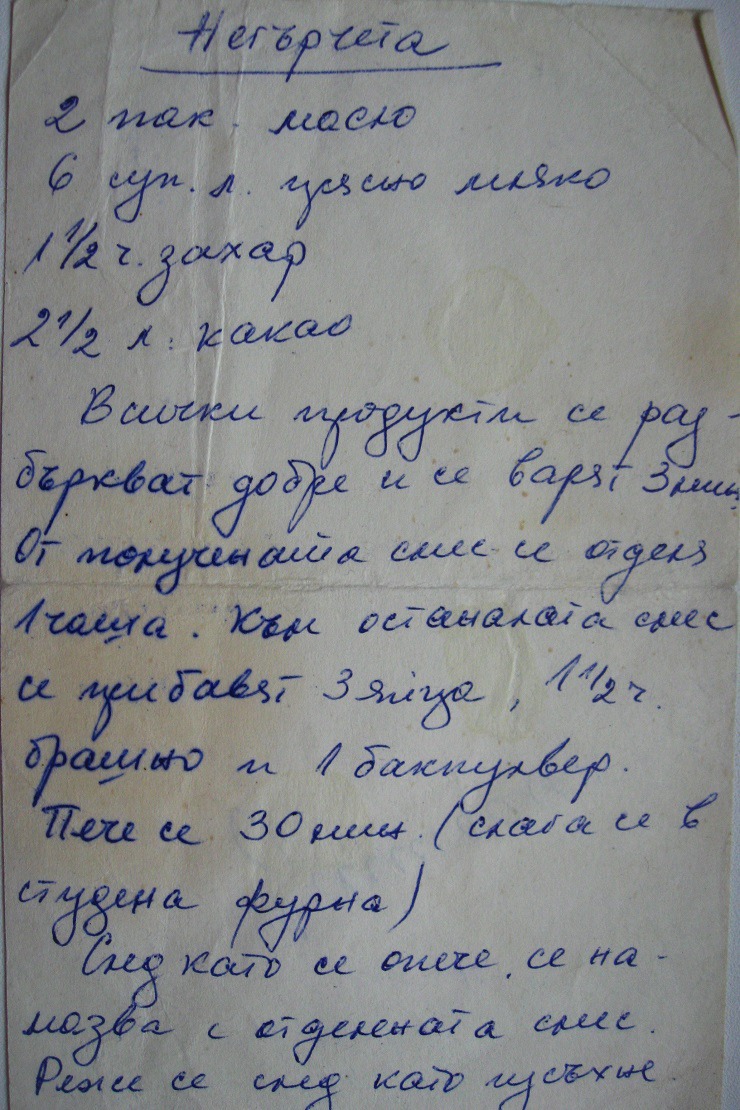 Негърчета
2 пак. масло
6 суп. л. прясно мляко
1 1/2 ч. захар
2 1/2 л. какао
Всички продукти се раз-
бъркват добре и се варят 3 мин
От получената смес се отделя
1 чаша. Към останалата смес
се прибавят 3 яйца, 1 1/2 ч.
брашно и 1 бакпулвер.
Пече се 30 мин. (слага се в
студена фурна)
След като се опече, се на-
мазва с отделената смес.
Реже се след като изсъхне.